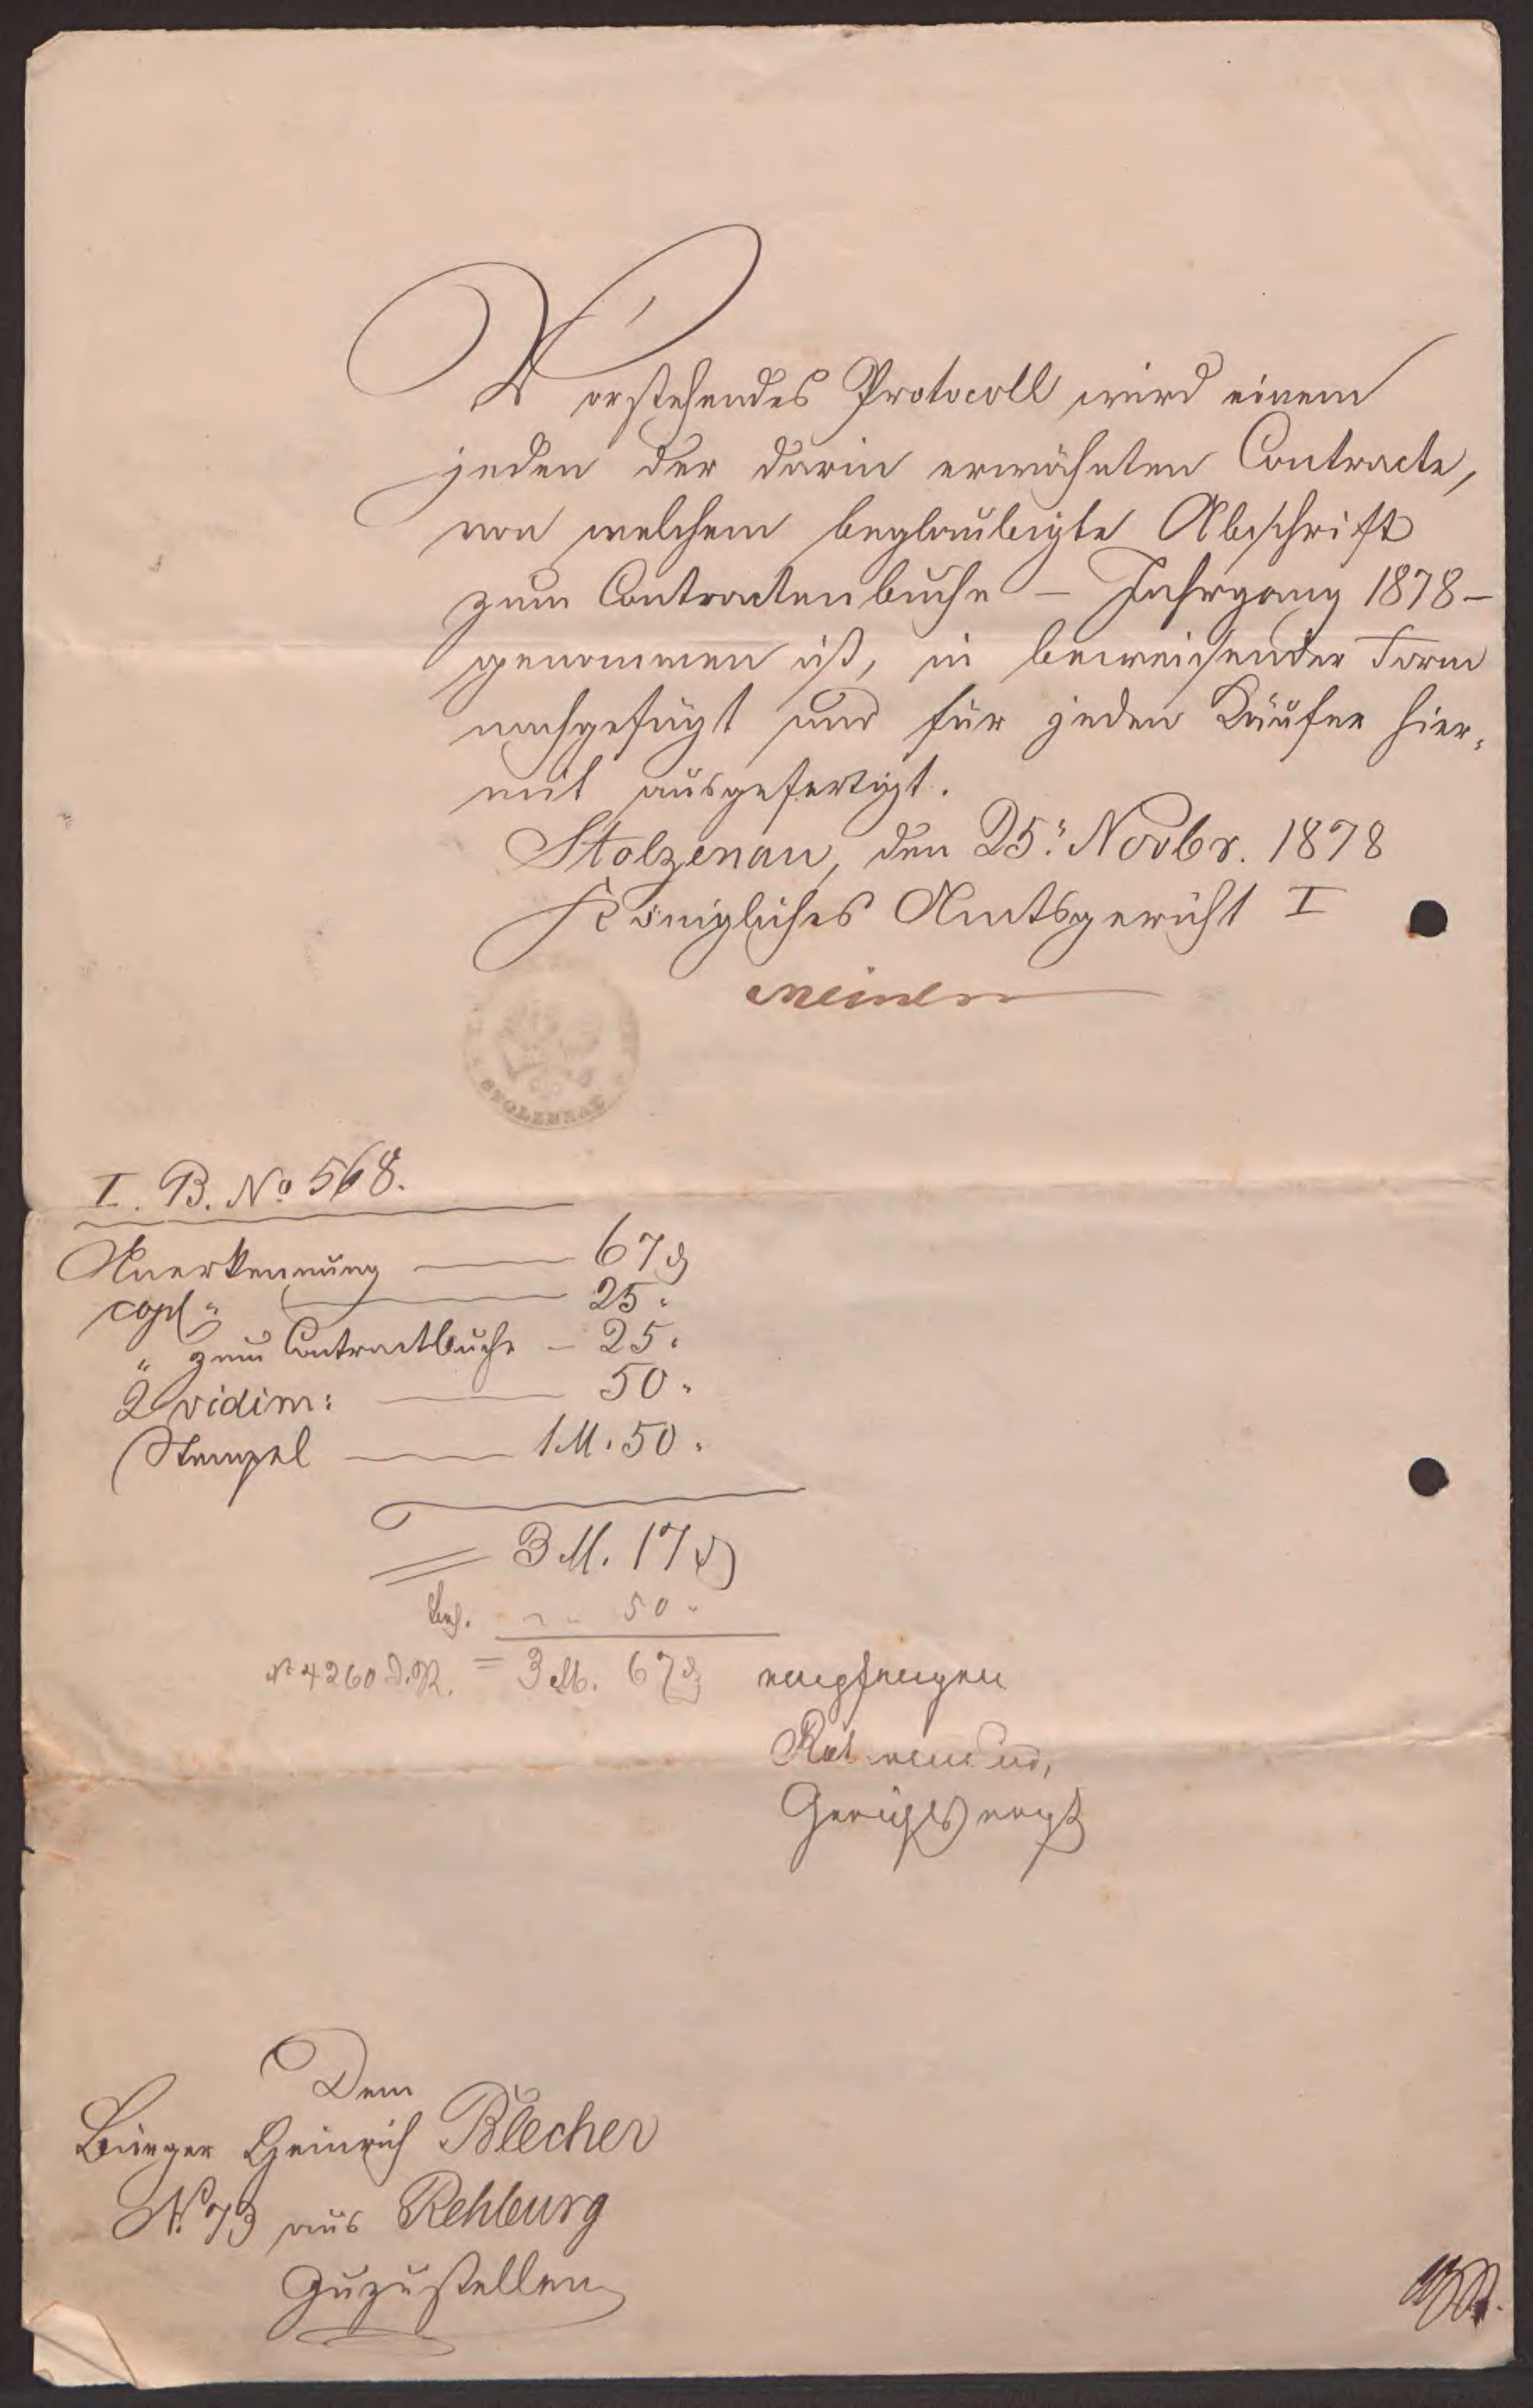 Vorstehendes Protocoll wird einem
jeden der darin erwähnten Contracte,
von welchem beglaubigte Abschrift
zum Contractenbuche – Jahrgang 1878 –
genommen ist, in beweisender Form
nachgefügt und für jeden Käufer hier-
mit ausgefertigt.
Stolzenau, den 25. Novbr. 1878
Königliches Amtsgericht I
STOLZENAU
I. B. No 568.
Anerkennung — 67 ₰
copl " — 25 "
" zum Contractbuche – 25 "
2 vidim: — 50 "
Stempel — 1 M. 50 "
= 3 M. 17 ₰
50 "
No 4260 D.R. = 3 M. 67 ₰ empfangen
Gerichtsvogt
Dem
Bürger Heinrich Blecher
No. 73 aus Rehburg
zuzustellen